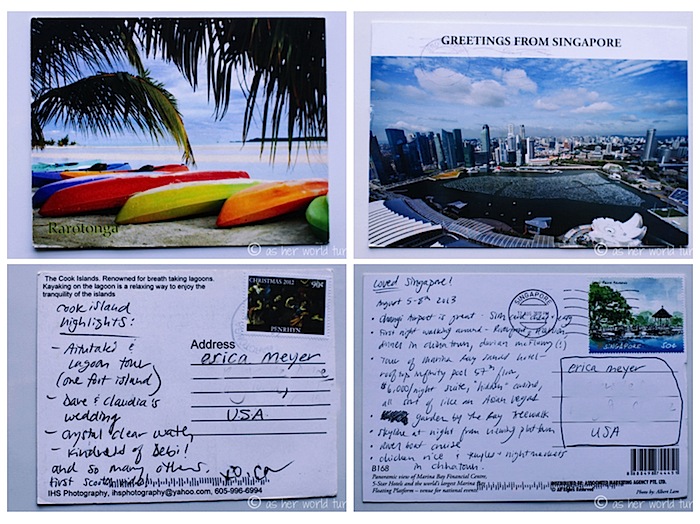 Rarotonga
© as her world tur
GREETINGS FROM SINGAPORE
© as her world tur
The Cook Islands. Renowned for breath taking lagoons.
Kayaking on the lagoon is a relaxing way to enjoy the
tranquility of the islands
cook island
highlights:
- Aitutaki &
lagoon tour
(one foot island)
- Dave & Claudia's
wedding
- crystal clear water
- kindness of Bebi!
and so many others.
first scooter ride!
xo, ca
IHS Photography, ihsphotography@yahoo.com, 605-996-6994
CHRISTMAS 2012 90c
PENRHYN
Address
erica meyer
USA
© as her world tur
Loved Singapore!
August 5-8th 2013
• Changi Airport is great -
• First night walking around -
dinner in chinatown, durian mcflurry (!)
• Tour of Marina Bay Sands hotel -
rooftop infinity pool 57th floor,
$6,000/night suite, "hidden" casino,
all sort of like an Asian Vegas
• garden by the Bay treewalk
• skyline at night from viewing platform
• river boat cruise
• chicken rice & temples & night markets
in chinatown.
B168
Panoramic view of Marina Bay Financial Centre,
5-Star Hotels and the world's largest Marina
Floating Platform – venue for national events
SINGAPORE
SINGAPORE 50¢
erica meyer
USA
ASSOCIATED MARKETING AGENCY PTE. LTD.
© All Rights Reserved
Photo by: Albert Lam
© as her world tur